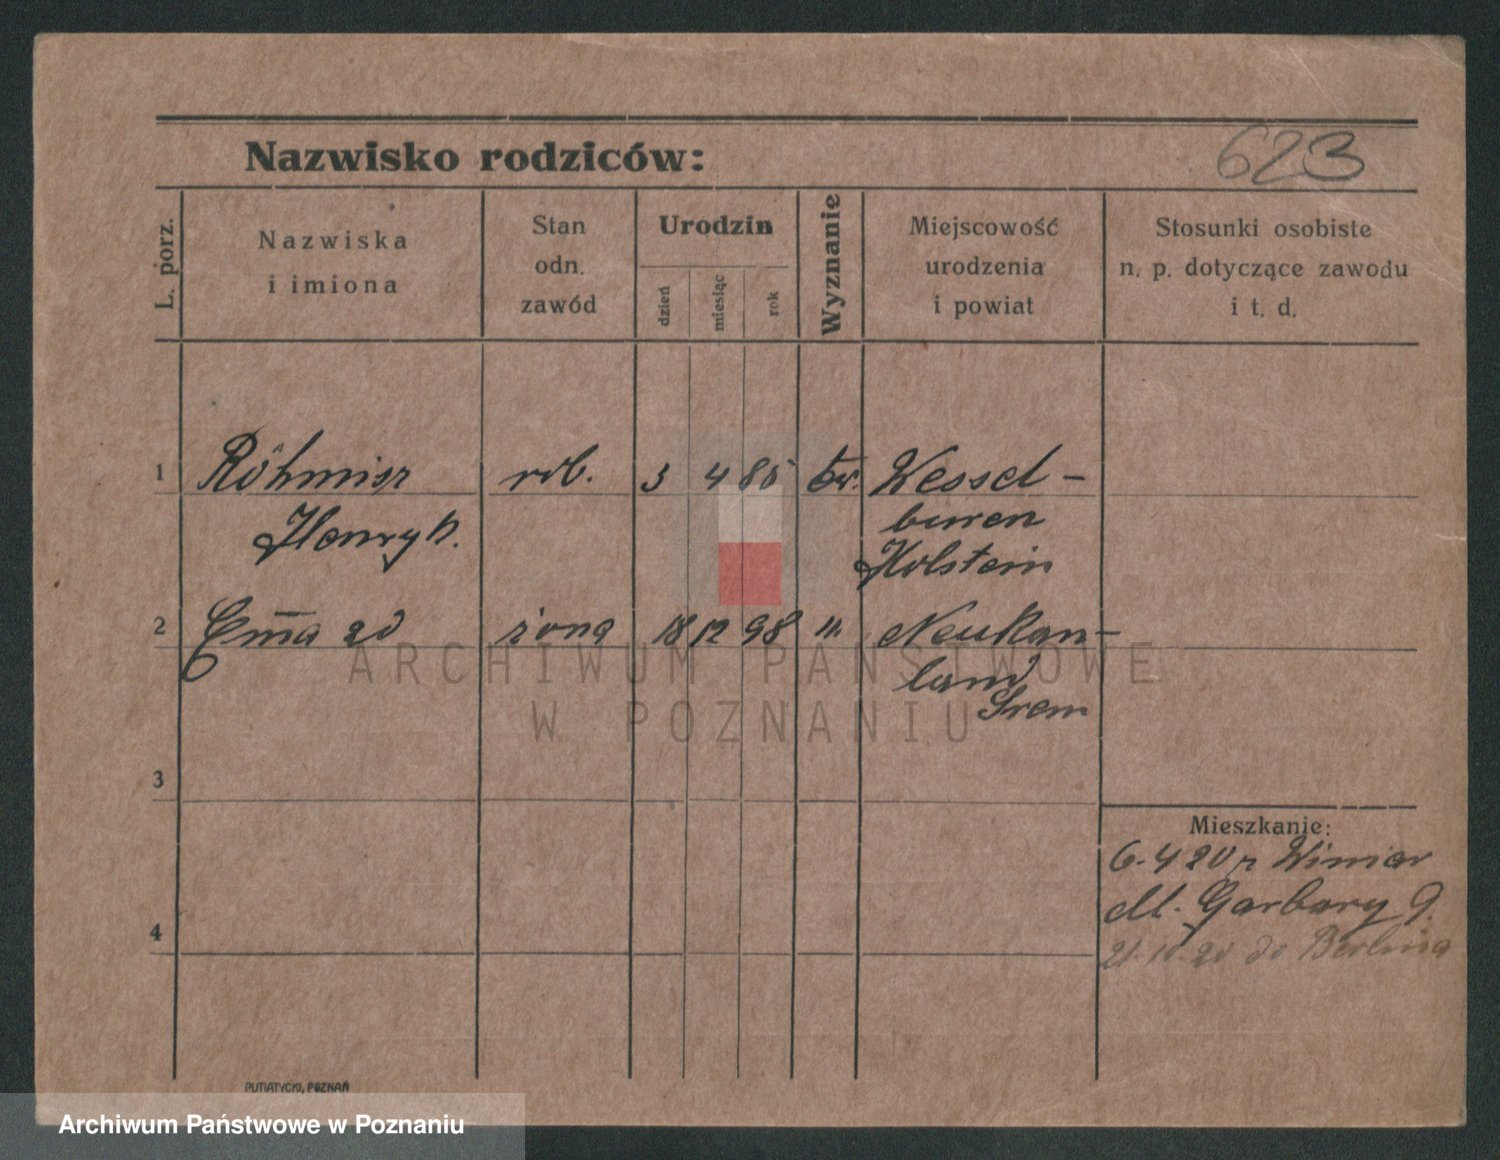 Nazwisko rodziców:
623
L. porz.
Nazwiska
i imiona
Stan
odn.
zawód
Urodzin
dzień
miesiąc
rok
Wyznanie
Miejscowość
urodzenia
i powiat
Stosunki osobiste
n. p. dotyczące zawodu
i t. d.
1 rob. 3 4 85 Ew. Wessel-
Henryk. buren
Holstein
2 Ema żona 18 12 98 Neukam-
land
Srem
ARCHIWUM PAŃSTWOWE
W POZNANIU
3
Mieszkanie:
6.4 20 z Winiar
M. Garbary 9.
4
21.10.20 do Berlina
PUTIATYCKI, POZNAŃ
Archiwum Państwowe w Poznaniu